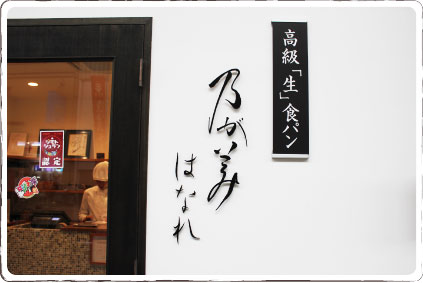 高級「生」食パン
乃が美
はなれ
認定